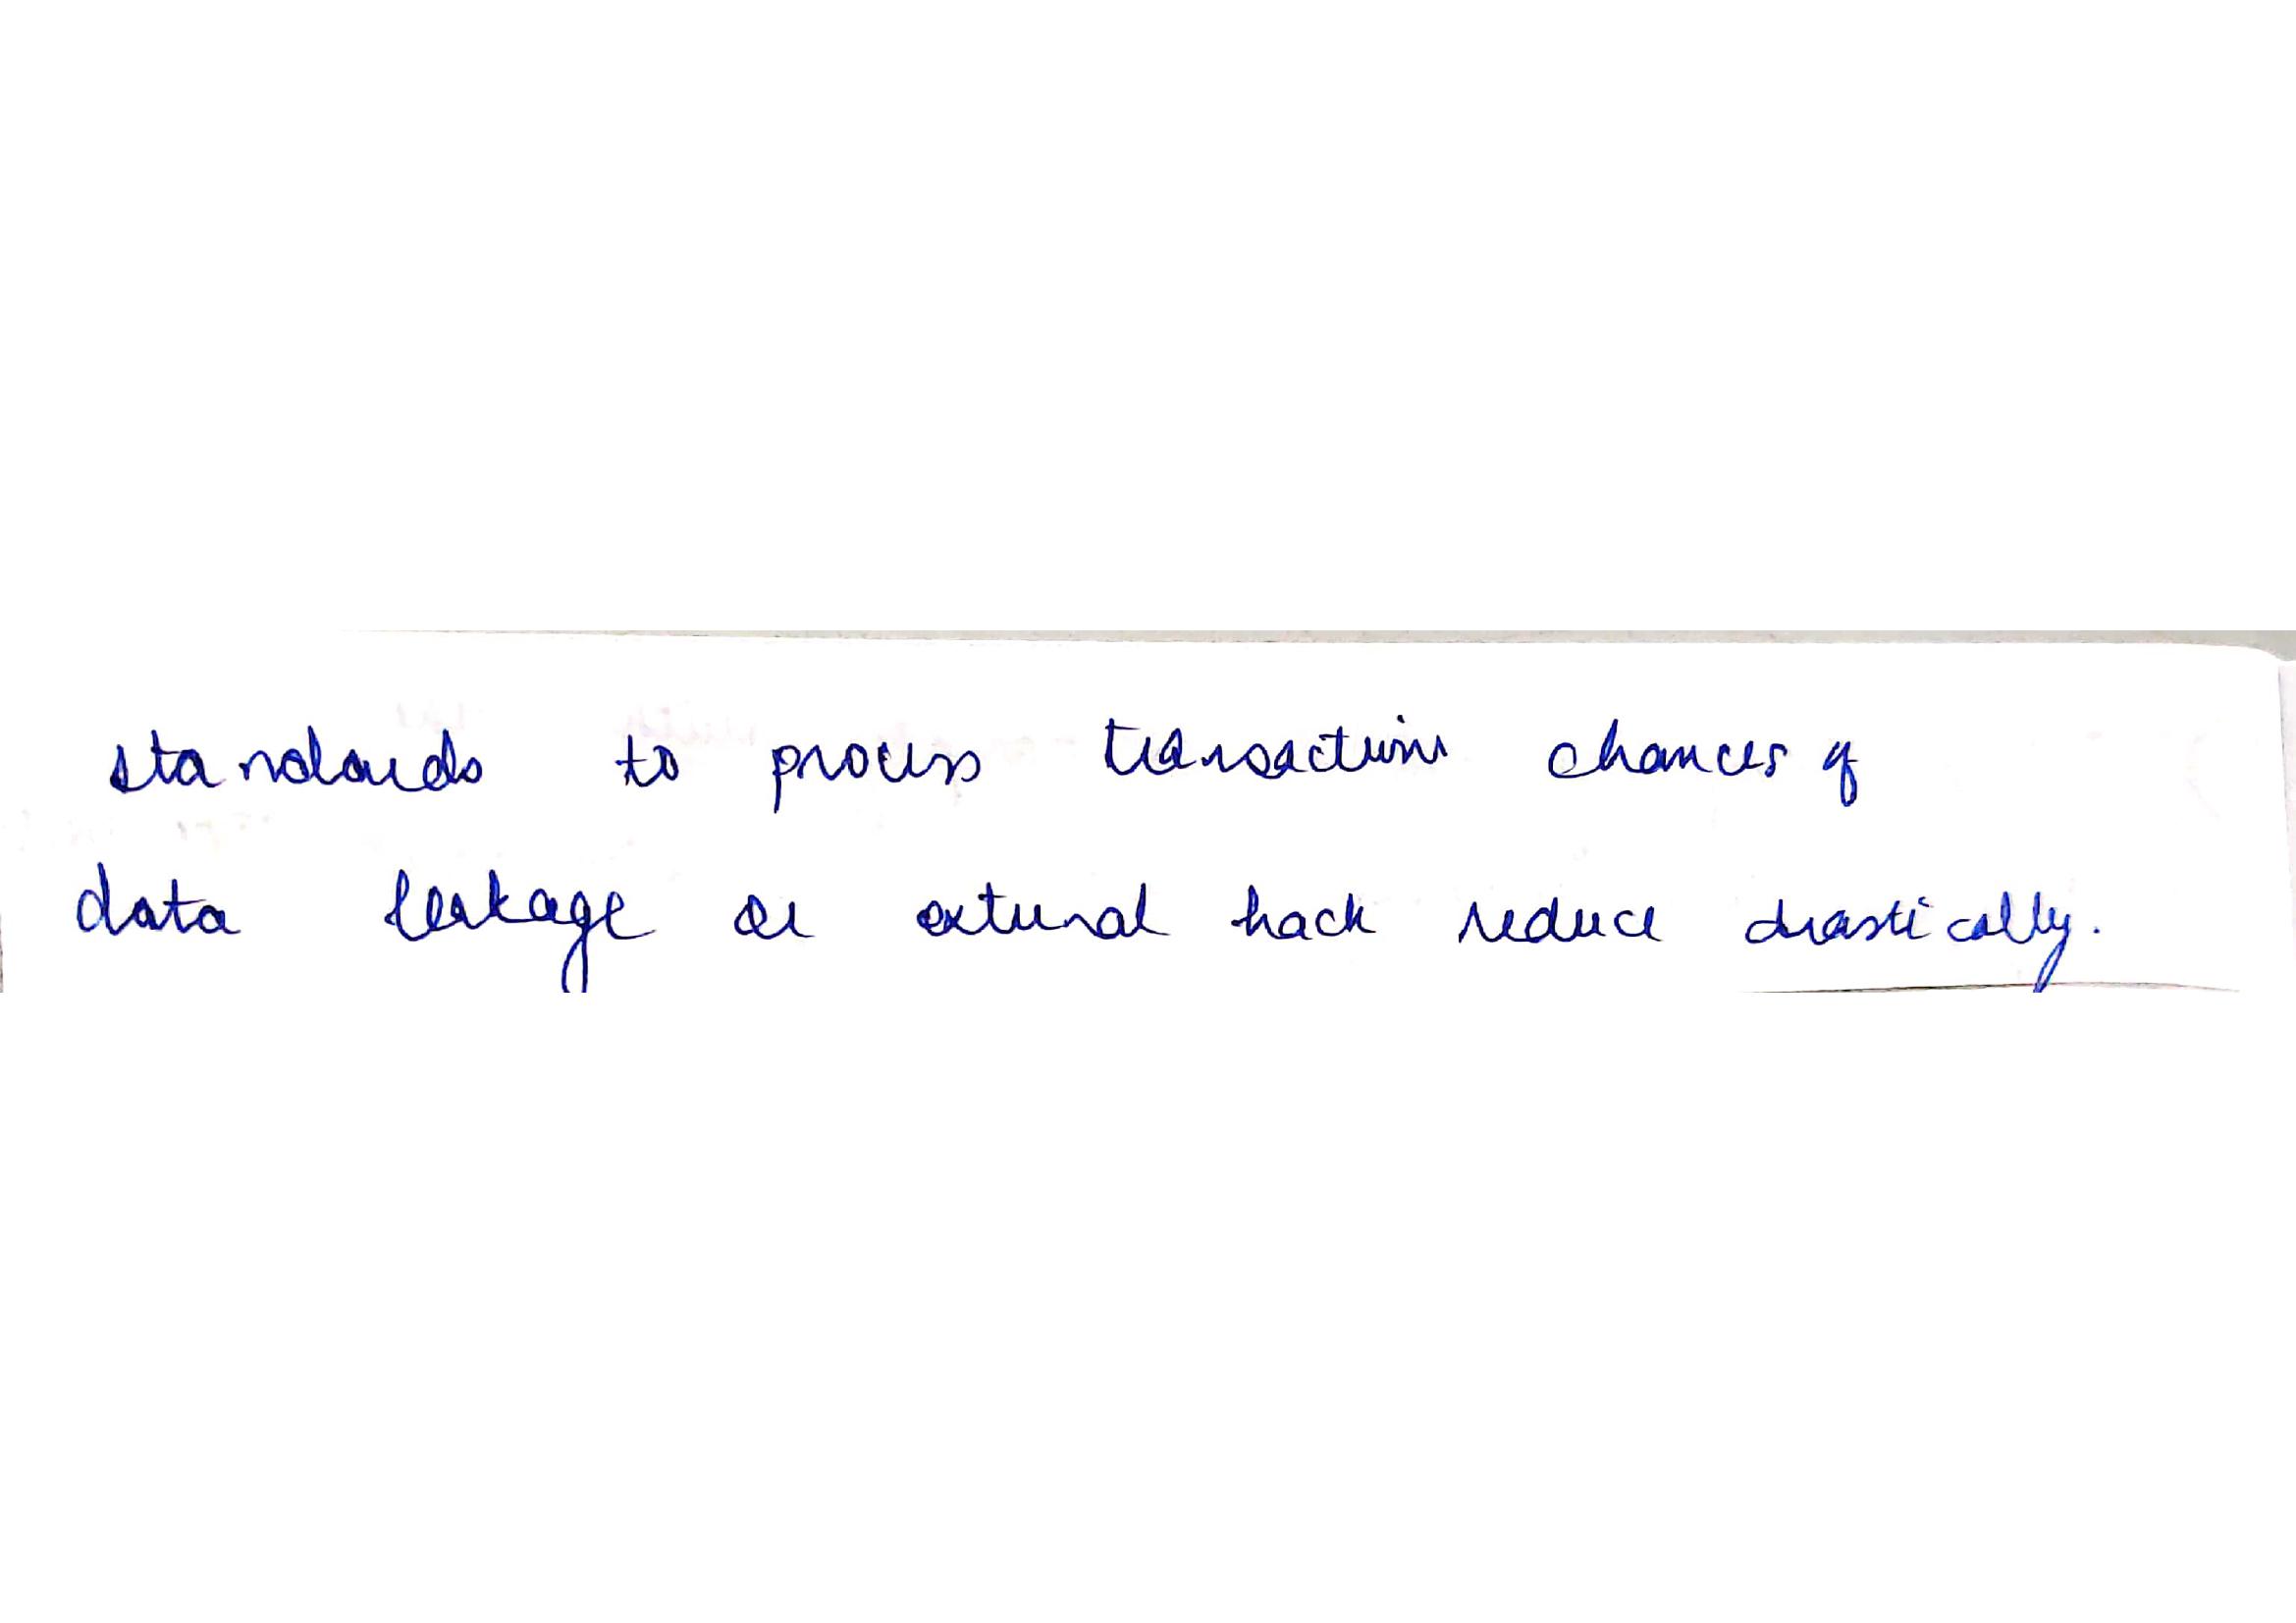 standards to process transactions chances of
data leakage or external hack reduce drastically.